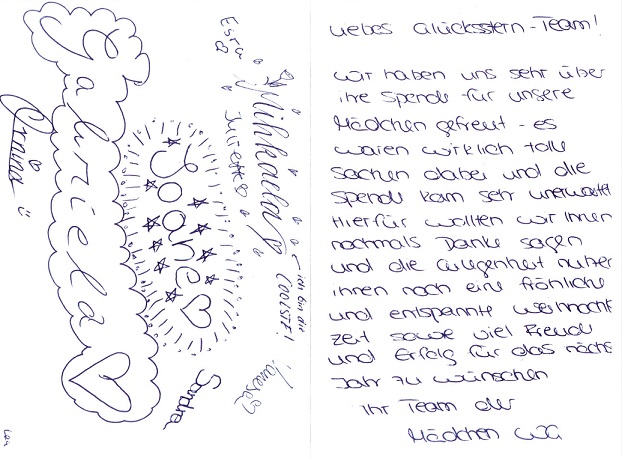 Gabriela
Esra
Mihkaela
Soane
ich bin die
COOLSTE!
Sandra
Liebes Glücksstern-Team!
Wir haben uns sehr über
ihre Spende für unsere
Mädchen gefreut - es
waren wirklich tolle
Sachen dabei und die
Spende kam sehr unerwartet
Hierfür wollten wir Ihnen
nochmals Danke sagen
und die Gelegenheit nutzen
ihnen noch eine fröhliche
und entspannte Weihnacht
zeit sowie viel Freude
und Erfolg für das nächst
Jahr zu wünschen
Ihr Team der
Mädchen WG